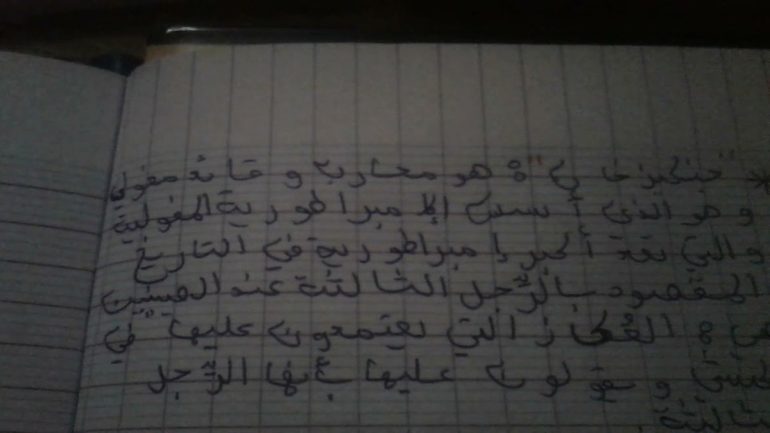 * "جنكيز خان": هو محارب و قائد مغولي
و هو الذي أسس الإمبراطورية المغولية
والتي تعد أكبر إمبراطورية في التاريخ
المقصود بالرجل الثالثة عند المسنين
هي العكاز التي يعتمدون عليها في
المشي و يقولون عليها بأنها الرجل
الثالثة